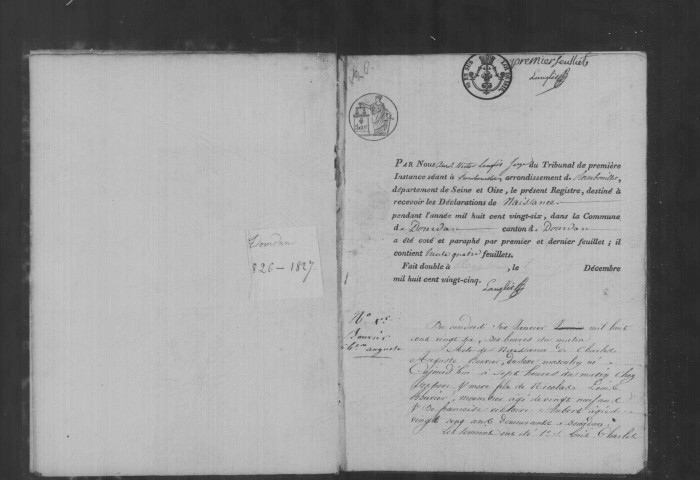 Dourdan
1826 – 1827
premier feuillet
Langlois
PAR NOUS Victor Langlois Juge du Tribunal de première
Instance séant à Rambouillet, arrondissement de Rambouillet,
département de Seine et Oise, le présent Registre, destiné à
recevoir les Déclarations de Naissance
pendant l'année mil huit cent vingt-six, dans la Commune
de Dourdan canton de Dourdan
a été coté et paraphé par premier et dernier feuillet; il
contient trente quatre feuillets.
Fait double à , le Décembre
mil huit cent vingt-cinq.
Langlois
No 1er
Janvier
auguste
Du vendredi six Janvier mil huit
cent vingt six, dix heures du matin
Acte de Naissance de Charles
Auguste , du sexe masculin né
aujourd'hui à sept heures du matin chez
ses père et mère, fils de Nicolas Louis
, âgé de vingt neuf ans
& De françoise victoire Aubert âgée de
vingt cinq ans demeurants à Dourdan;
Les témoins ont été 1° Louis Charles